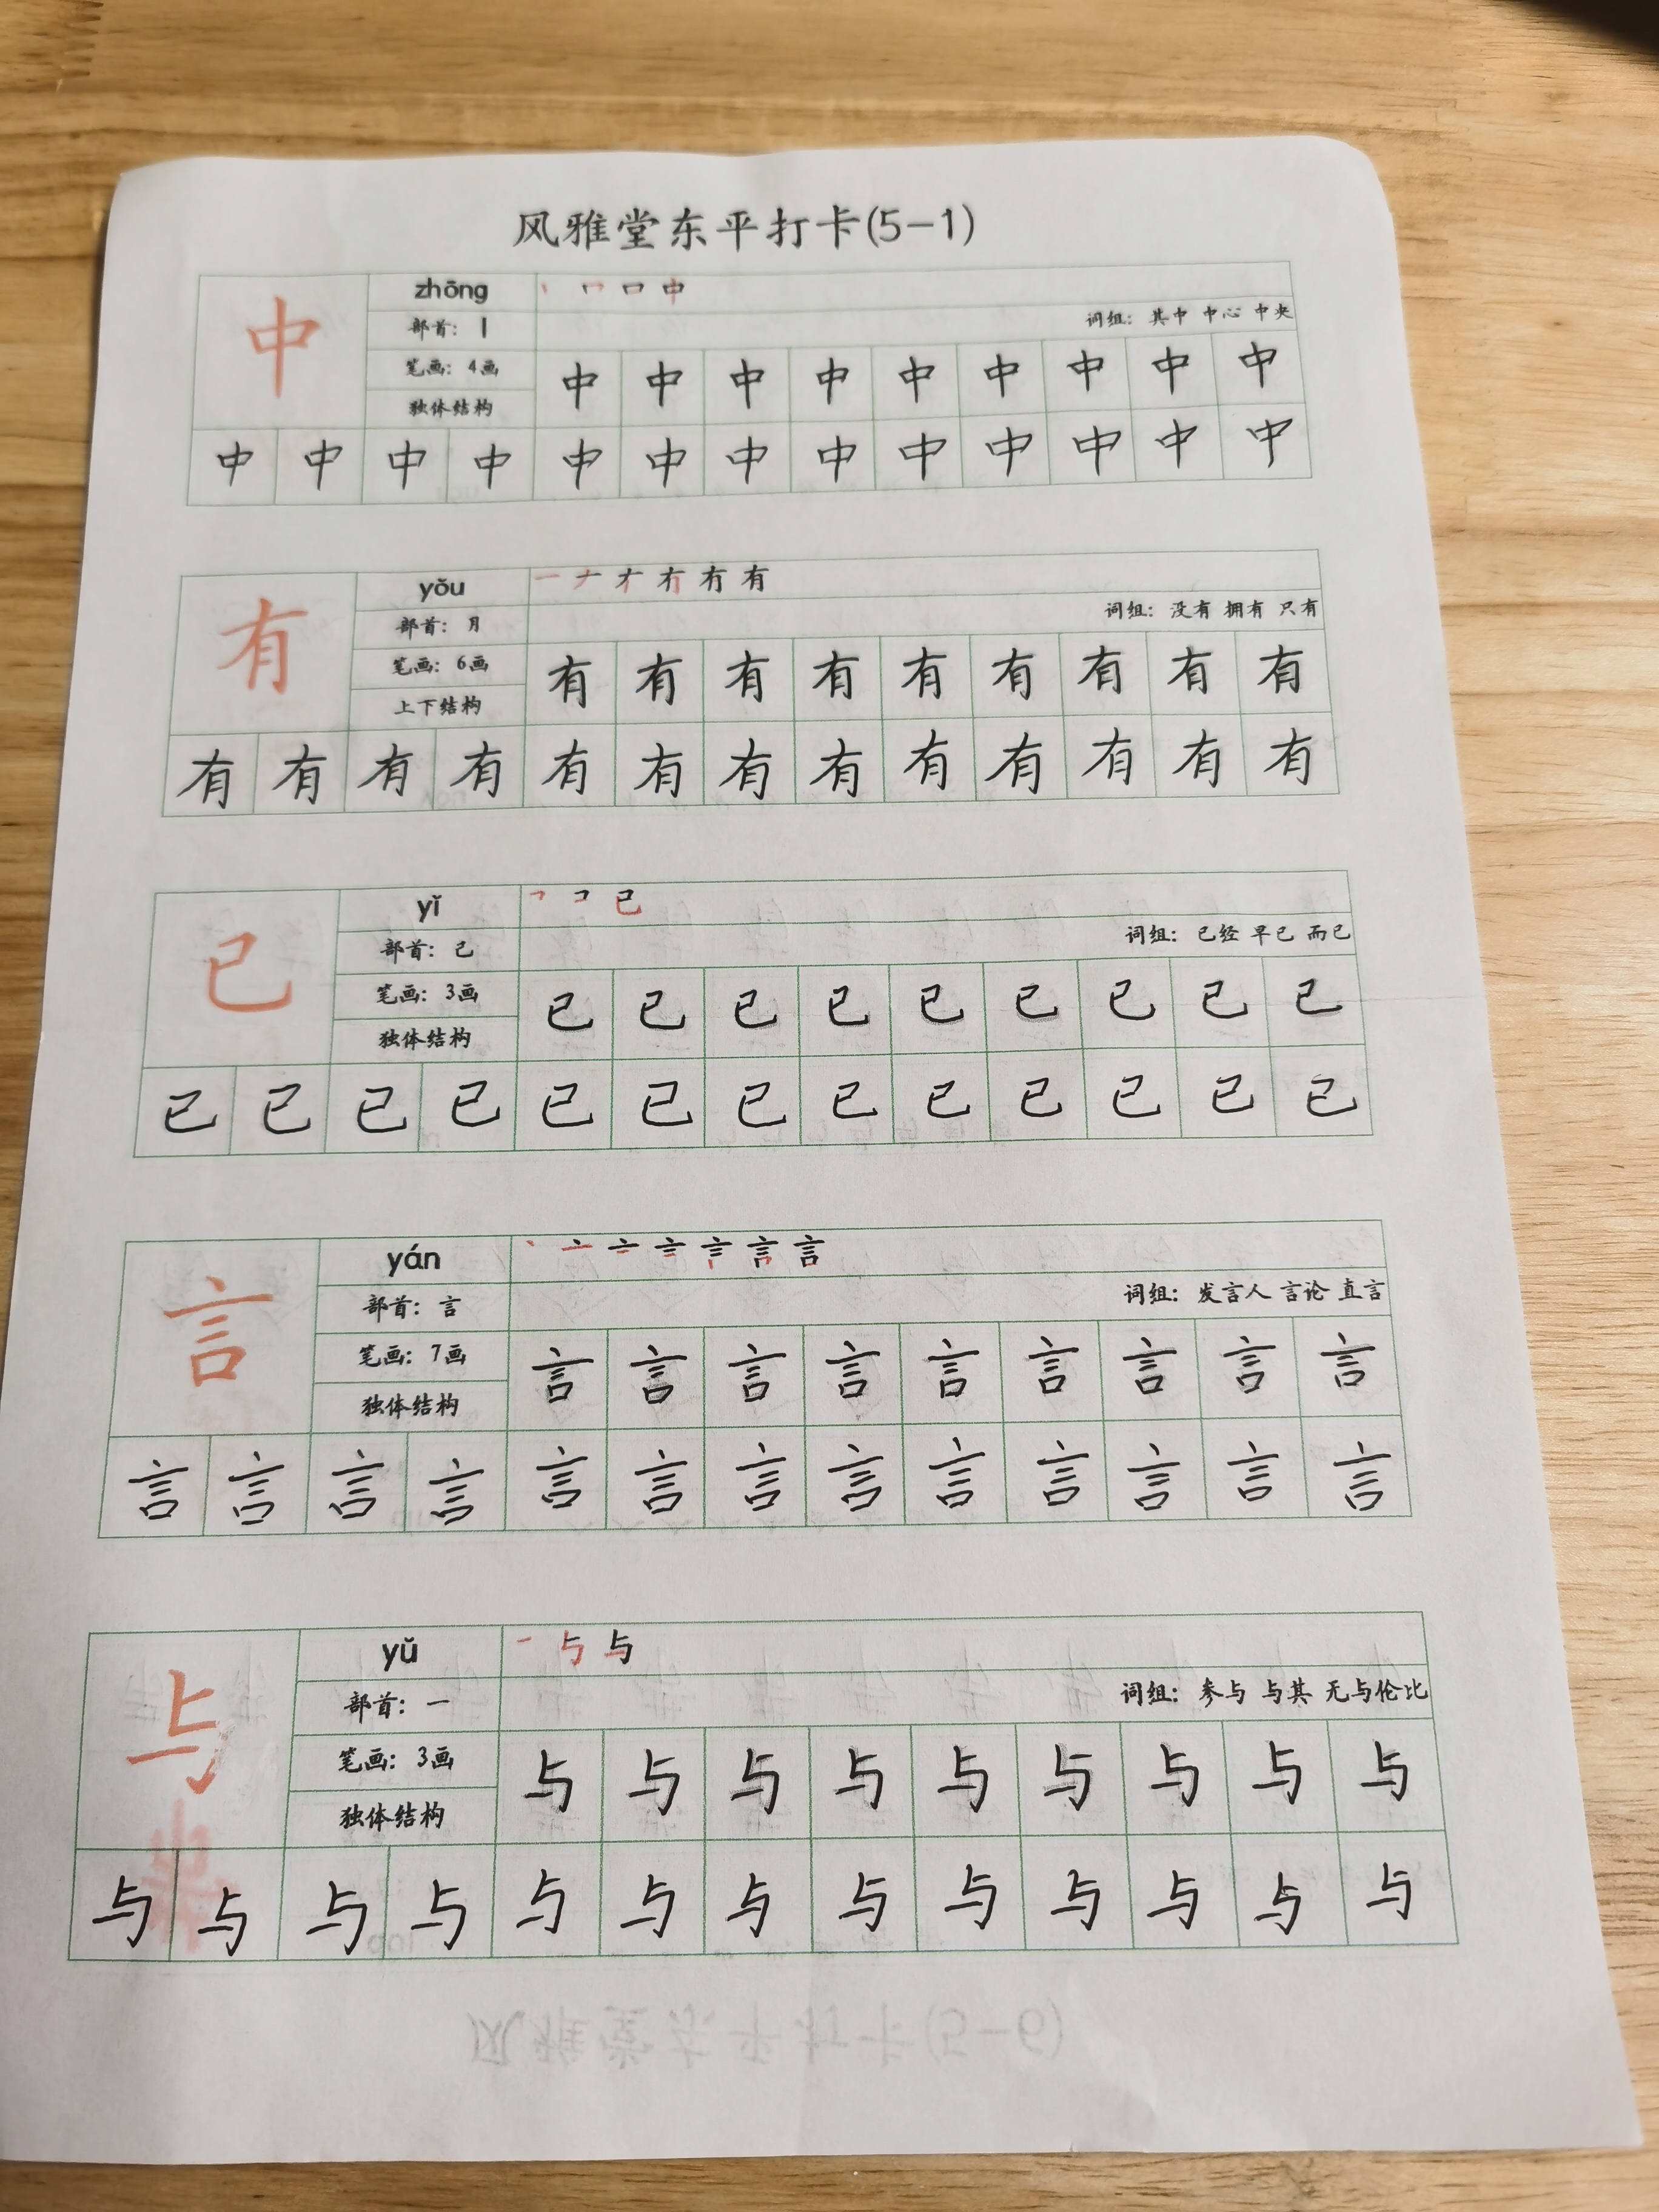 风雅堂东平打卡(5-1)
中
zhōng
部首：丨
词组：其中 中心 中央
笔画：4画
独体结构
中 中 中 中 中 中 中 中 中
中 中 中 中 中 中 中 中 中 中 中 中 中
有
yǒu
部首：月
词组：没有 拥有 只有
笔画：6画
上下结构
有 有 有 有 有 有 有 有 有
有 有 有 有 有 有 有 有 有 有 有 有 有
已
yǐ
部首：已
词组：已经 早已 而已
笔画：3画
独体结构
已 已 已 已 已 已 已 已 已
已 已 已 已 已 已 已 已 已 已 已 已 已
言
yán
部首：言
词组：发言人 言论 直言
笔画：7画
独体结构
言 言 言 言 言 言 言 言 言
言 言 言 言 言 言 言 言 言 言 言 言 言
与
yǔ
部首：一
词组：参与 与其 无与伦比
笔画：3画
独体结构
与 与 与 与 与 与 与 与 与
与 与 与 与 与 与 与 与 与 与 与 与 与
风雅堂东平打卡(5-6)